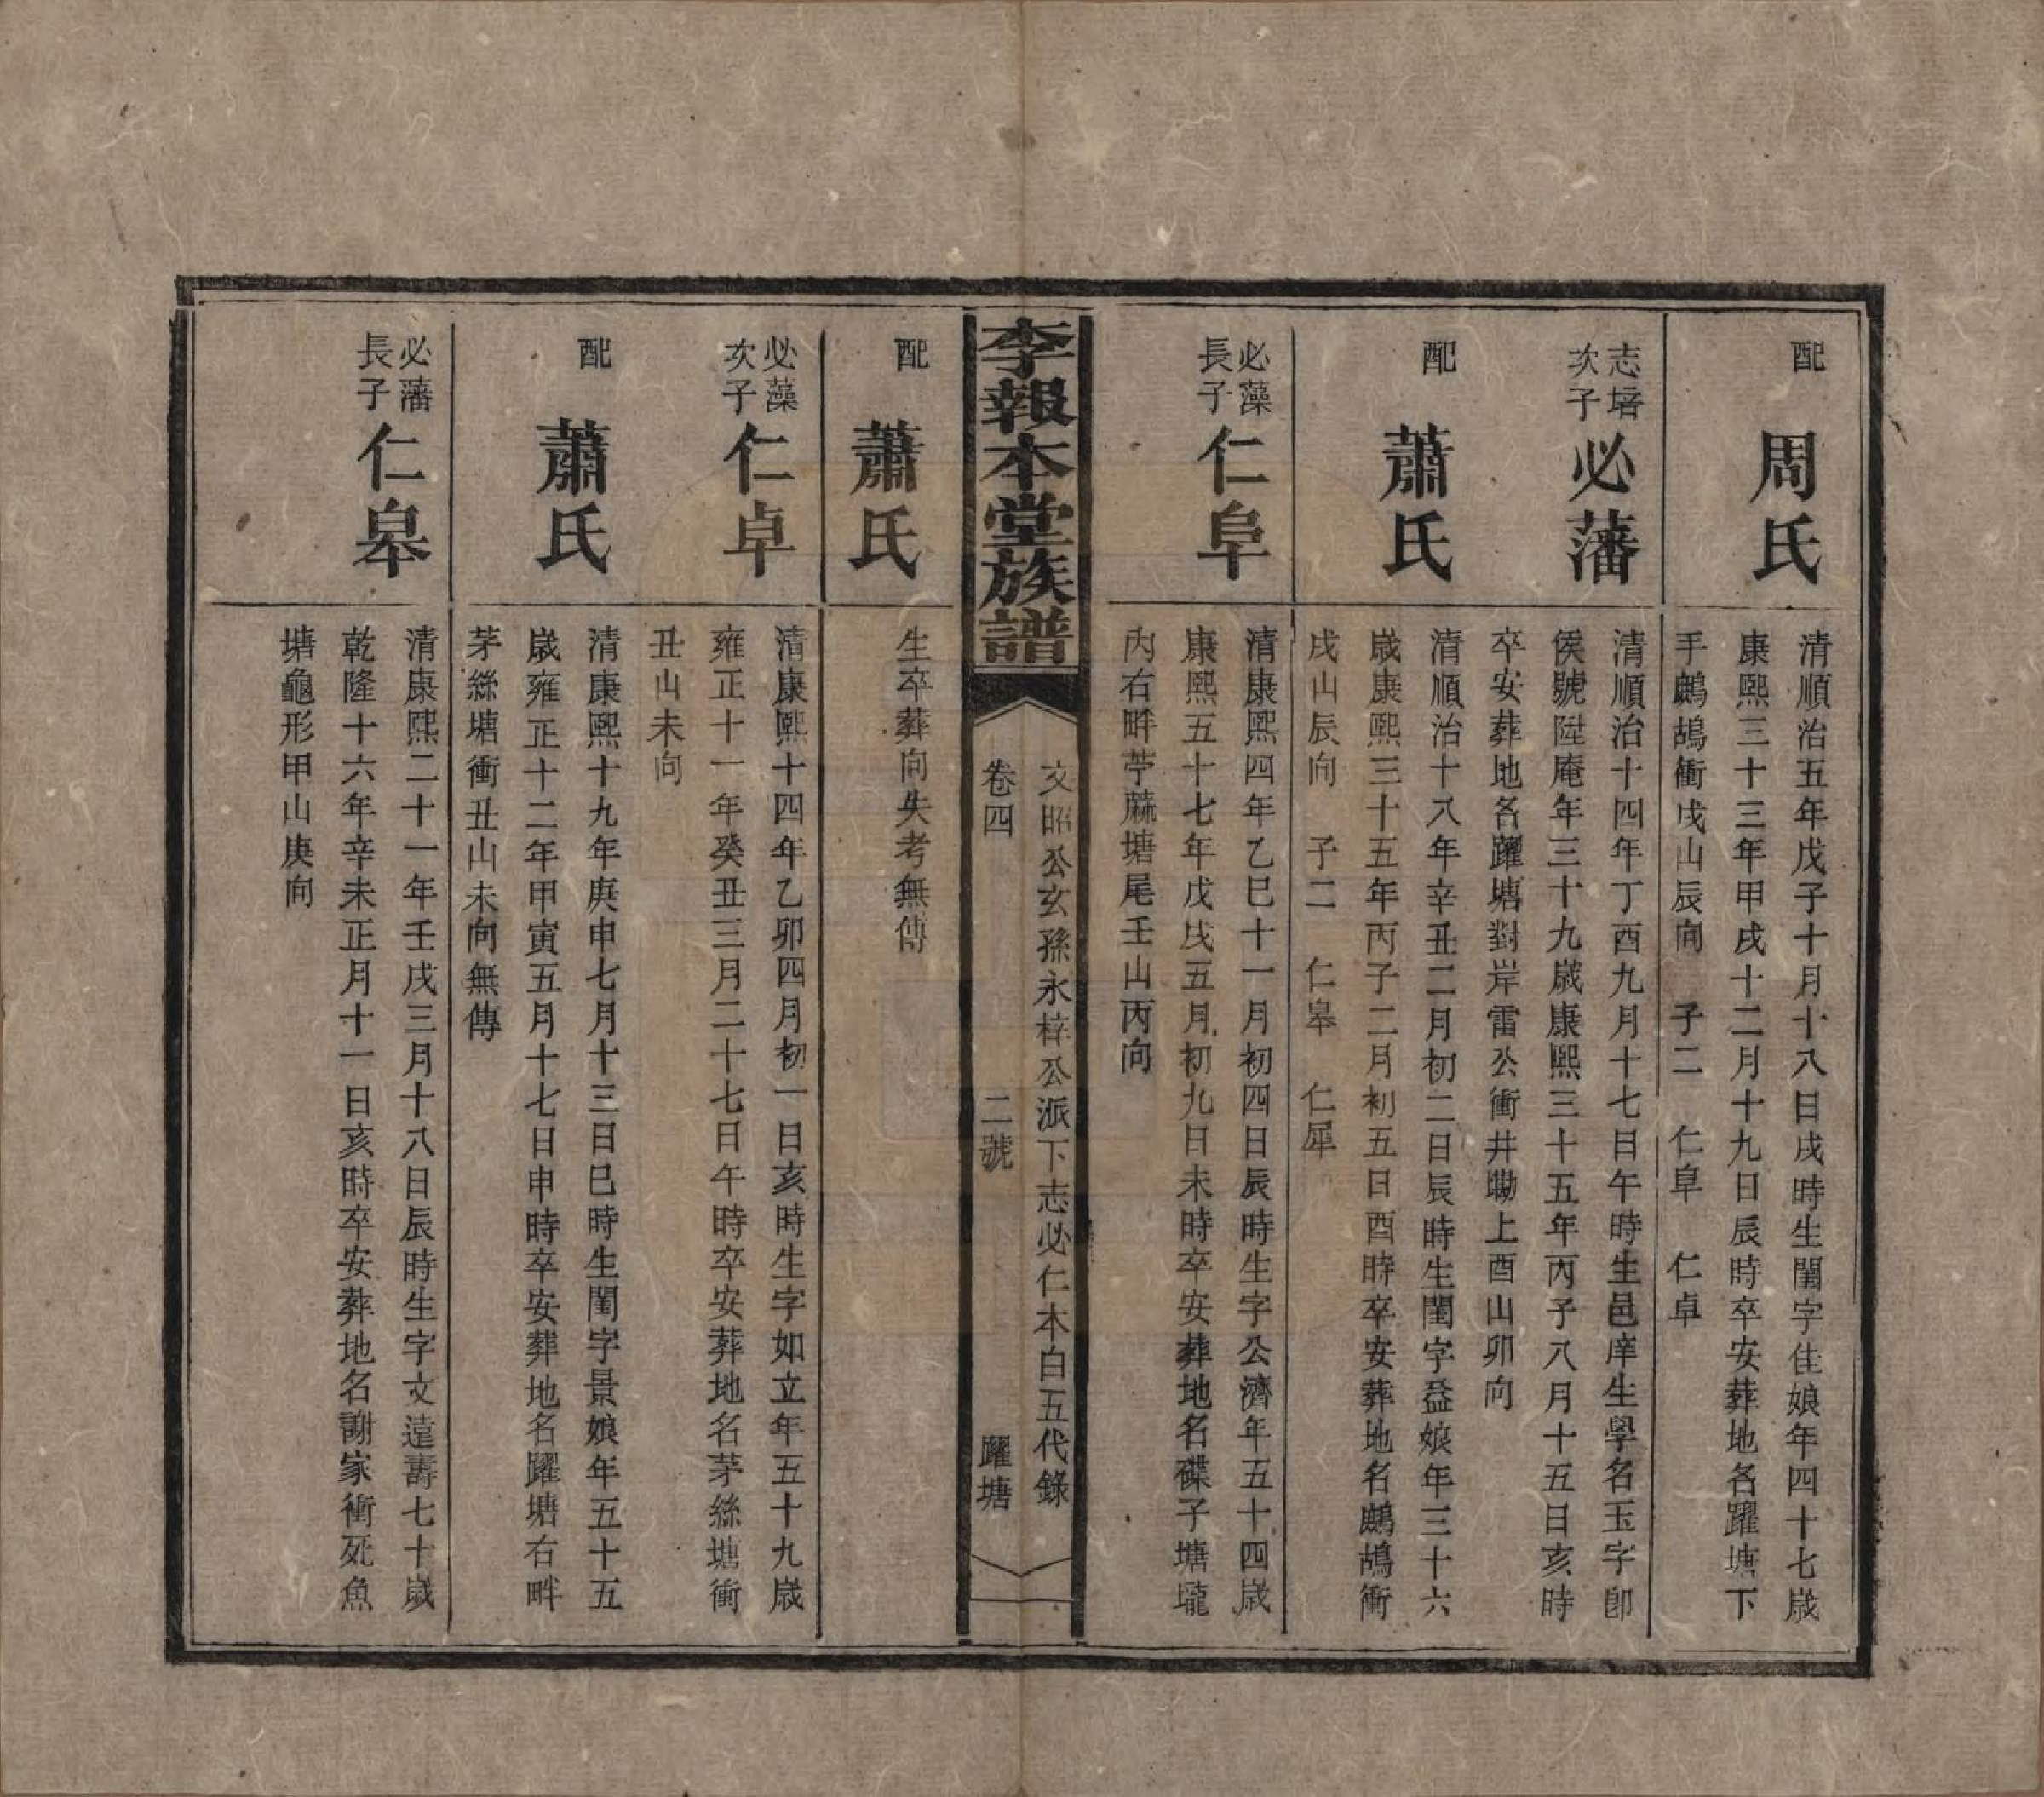 配
周氏
清順治五年戊子十月十八日戌時生閨字佳娘年四十七歲
康熙三十三年甲戌十二月十九日辰時卒安葬地名躍塘下
手鷓鴣衝戌山辰向　子二　仁阜　仁卓
志培
次子
必藩
清順治十四年丁酉九月十七日午時生邑庠生學名玉字卽
侯號陞庵年三十九歲康熙三十五年丙子八月十五日亥時
卒安葬地名躍塘對岸雷公衝井塝上酉山卯向
配
蕭氏
清順治十八年辛丑二月初二日辰時生閨字益娘年三十六
歲康熙三十五年丙子二月初五日酉時卒安葬地名鷓鴣衝
戌山辰向　子二　仁皋　仁犀
必藻
長子
仁阜
清康熙四年乙巳十一月初四日辰時生字公濟年五十四歲
康熙五十七年戊戌五月初九日未時卒安葬地名磜子塘壠
內右畔苧蔴塘尾壬山丙向
李報本堂族譜
文昭公玄孫永梓公派下志必仁本白五代錄
卷四　二號　躍塘
配
蕭氏
生卒葬向失考無傳
必藻
次子
仁卓
清康熙十四年乙卯四月初一日亥時生字如立年五十九歲
雍正十一年癸丑三月二十七日午時卒安葬地名茅絲塘衝
丑山未向
配
蕭氏
清康熙十九年庚申七月十三日巳時生閨字景娘年五十五
歲雍正十二年甲寅五月十七日申時卒安葬地名躍塘右畔
茅絲塘衝丑山未向無傳
必藩
長子
仁皋
清康熙二十一年壬戌三月十八日辰時生字文達壽七十歲
乾隆十六年辛未正月十一日亥時卒安葬地名謝家衝死魚
塘龜形甲山庚向